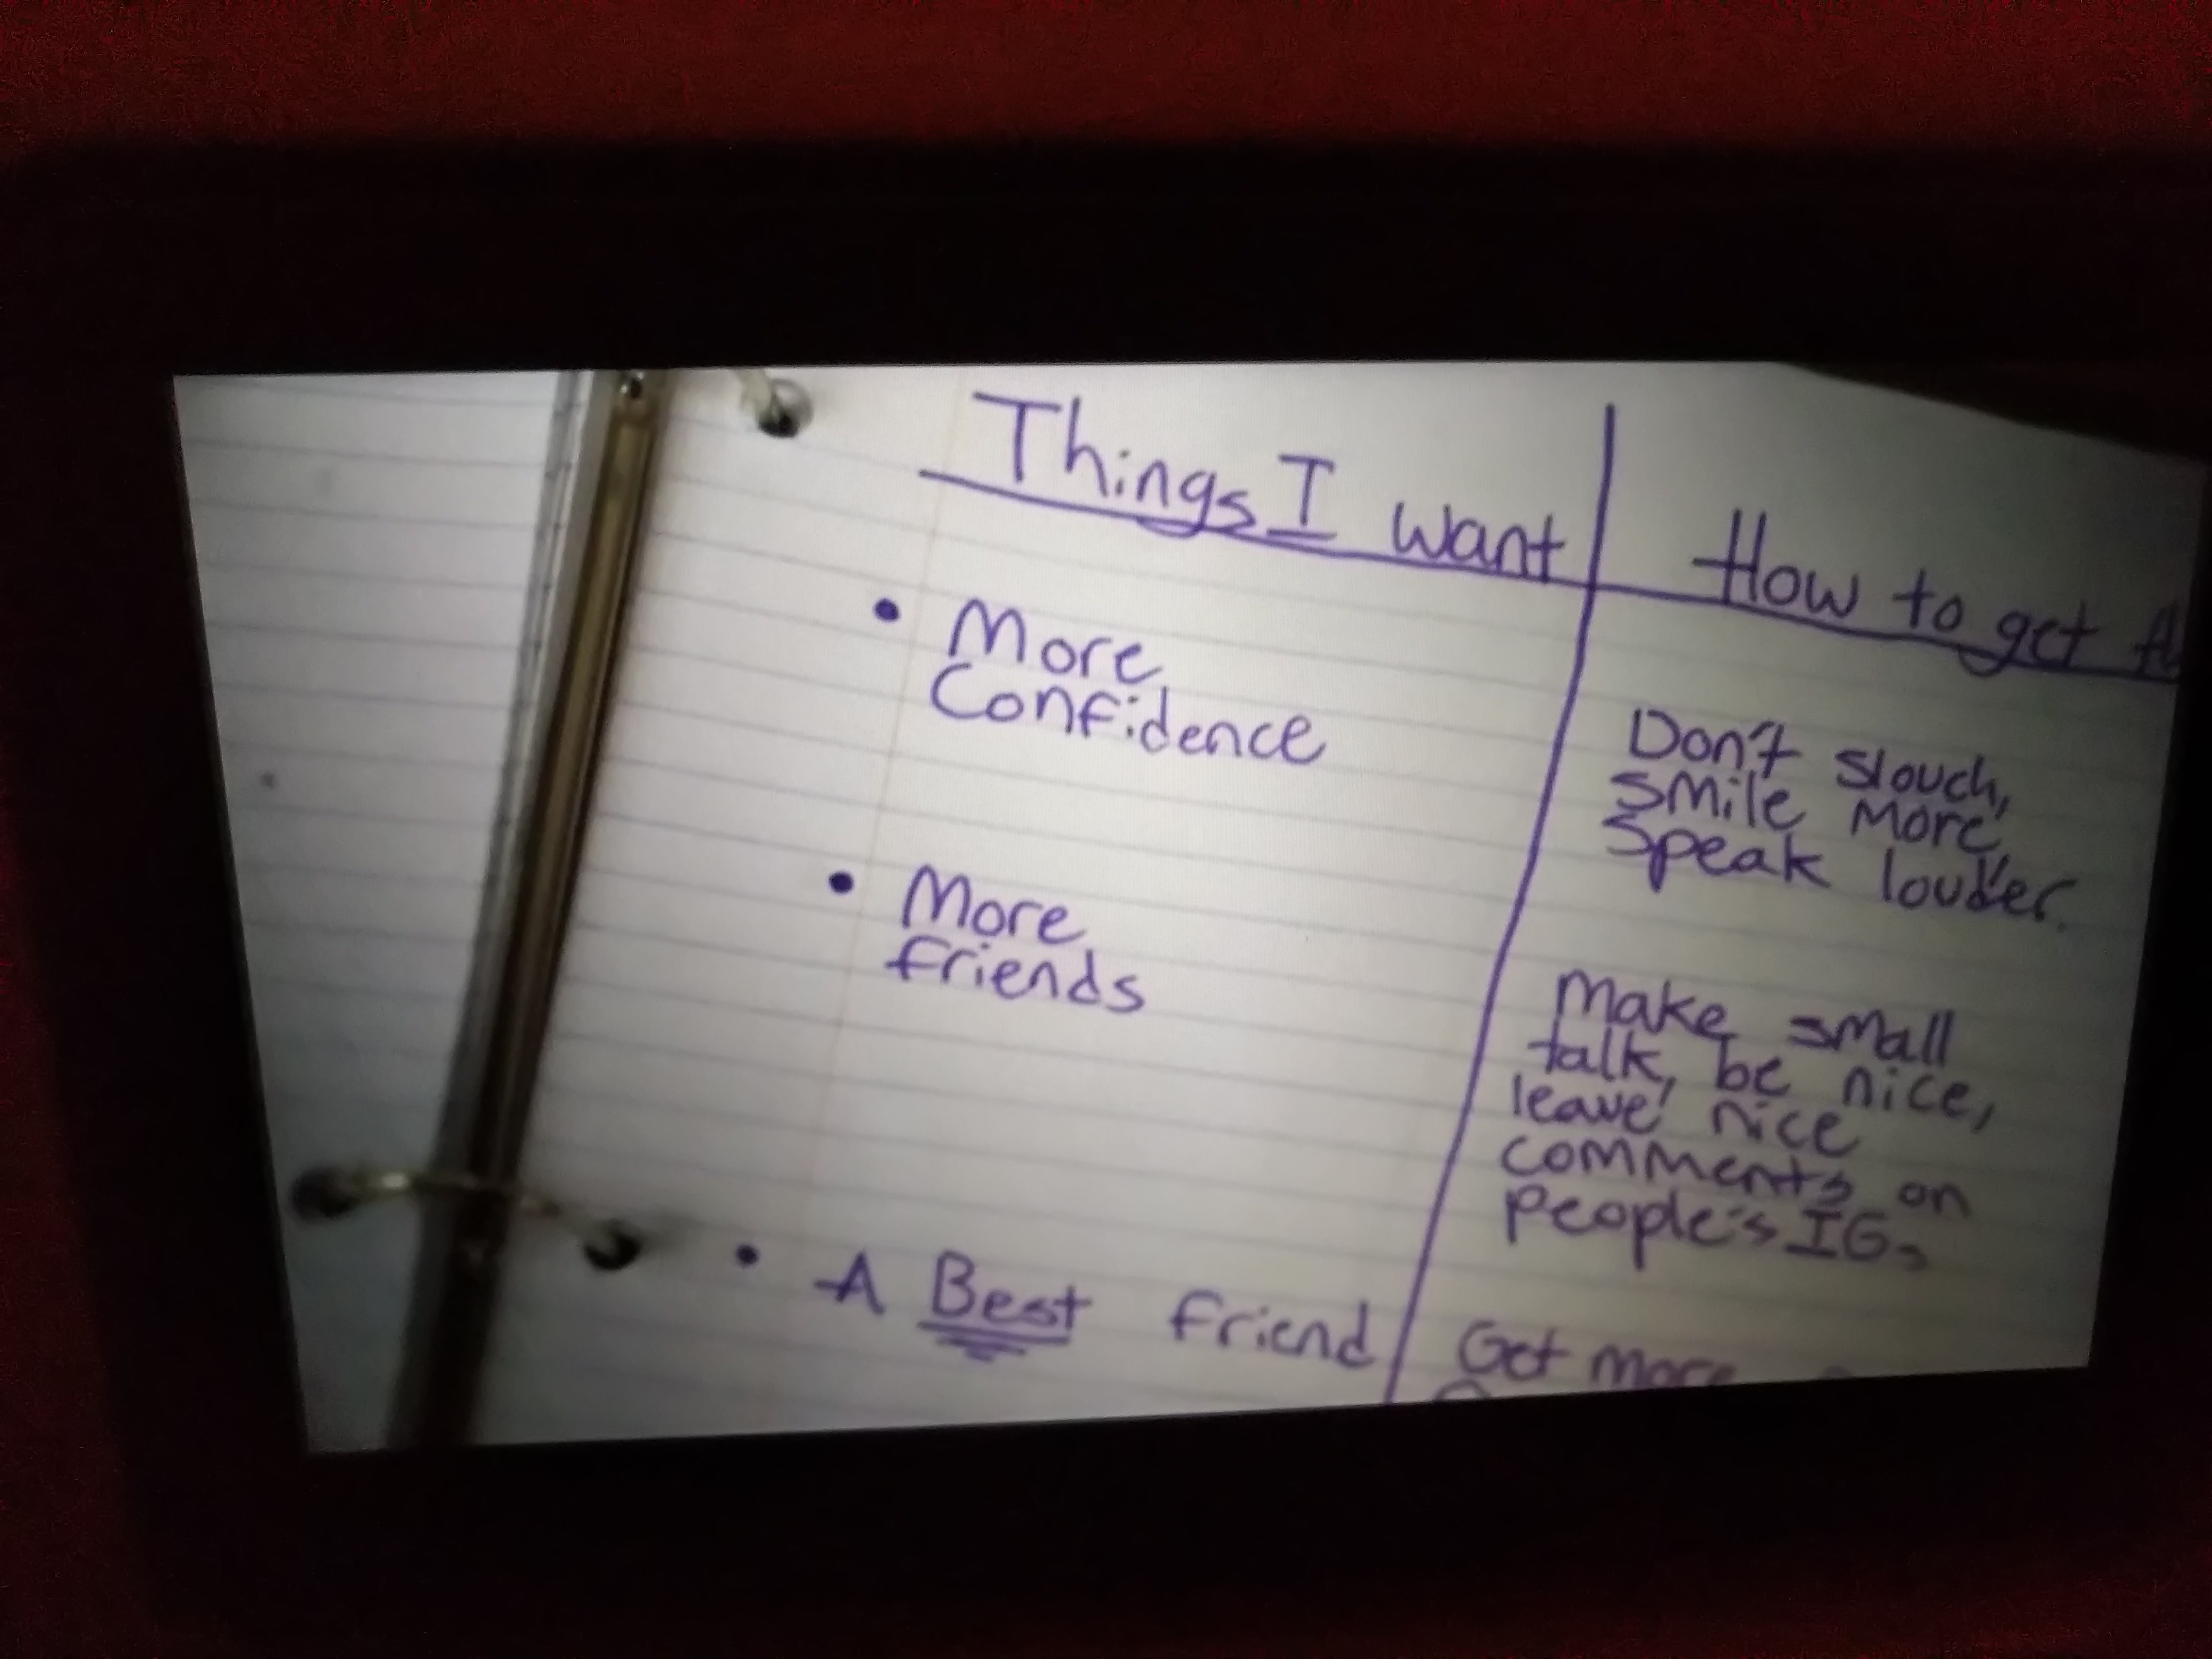 Things I want
How to get
• More
Confidence
Don't slouch,
smile more,
Speak louder.
• More
friends
Make small
talk, be nice,
leave nice
comments on
people's IG,
• A Best friend
Get more